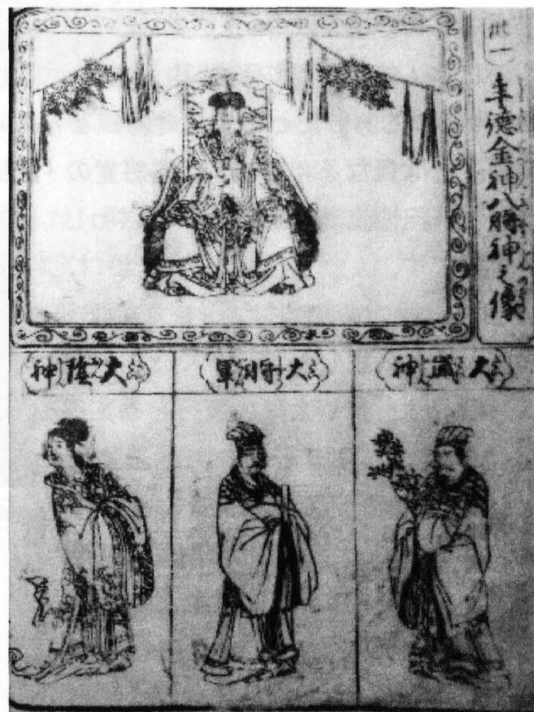 卅一
年徳金神八將神之像
大歳神
大将軍
大陰神